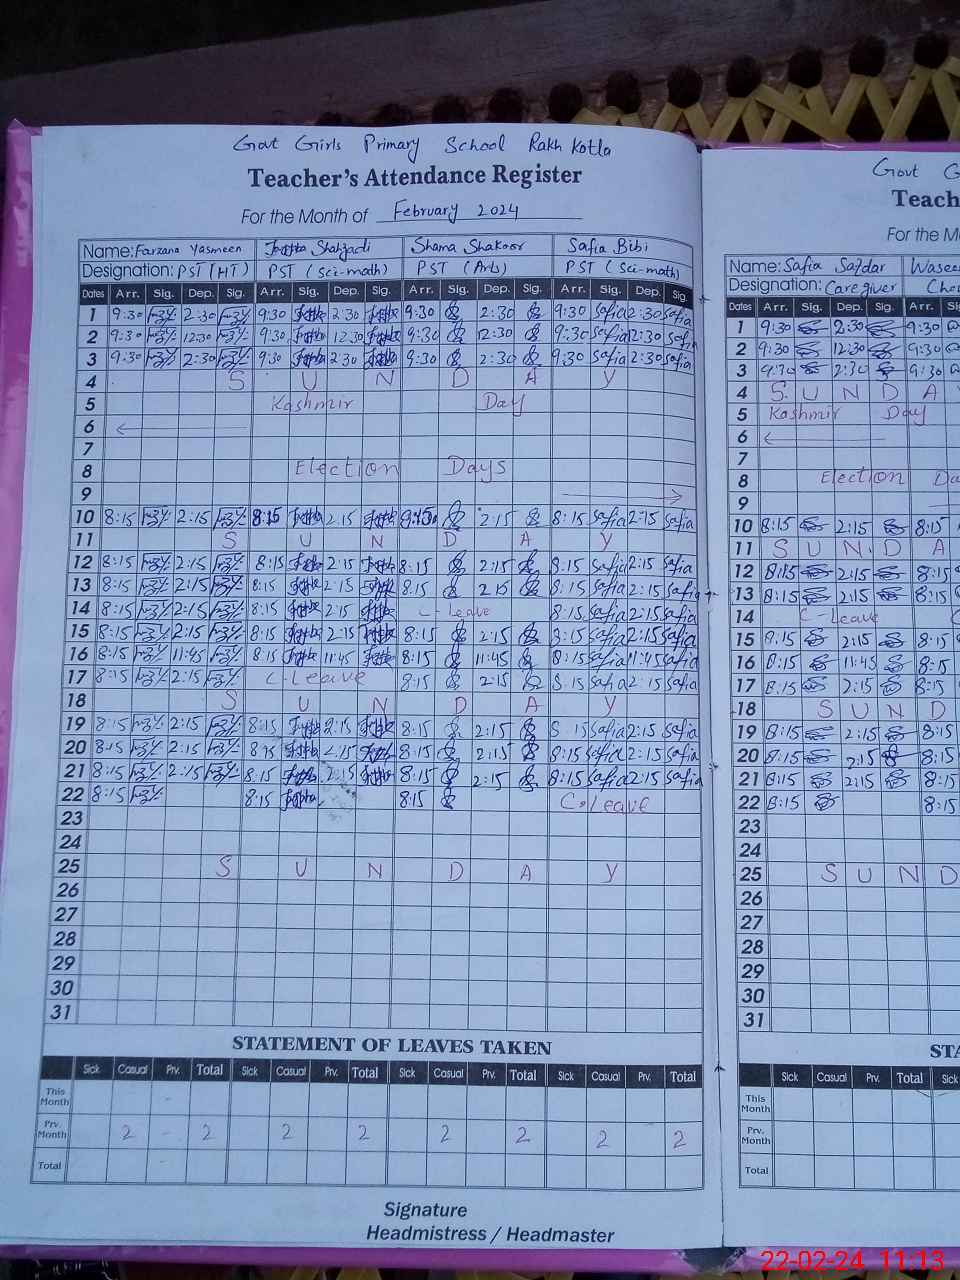 Govt Girls Primary School Rakh Kotla
Teacher's Attendance Register
For the Month of February 2024
Name: Farzana Yasmeen Shahzadi Shama Shakoor Safia Bibi
Designation: PST (HT) PST (Sci-math) PST (Arts) PST (Sci-math)
Dates Arr. Sig. Dep. Sig. Arr. Sig. Dep. Sig. Arr. Sig. Dep. Sig. Arr. Sig. Dep. Sig.
1 9:30 2:30 9:30 2 30 9:30 2:30 9:30 Safia 2:30 Safia
2 9:30 12:30 9:30 12.30 9:30 12:30 9:30 Safia 12:30 Safia
3 9:30 2:30 9:30 2 30 9:30 2:30 9:30 Safia 2:30 Safia
4 S U N D A Y
5 Kashmir Day
6
7
8 Election Days
9
10 8:15 2:15 8:15 2.15 2:15 8:15 Safia 2:15 Safia
11 S U N D A Y
12 8:15 2:15 8:15 2:15 8:15 2:15 8:15 Safia 2:15 Safia
13 8:15 2:15 8:15 2 15 8:15 2 15 8:15 Safia 2:15 Safia
14 8:15 2:15 8:15 2:15 C-Leave 8:15 Safia 2:15 Safia
15 8:15 2:15 8:15 2:15 8:15 2:15 8:15 Safia 2:15 Safia
16 8:15 11:45 8:15 11:45 8:15 11:45 8:15 Safia 11:45 Safia
17 8:15 2:15 C-Leave 8:15 2:15 8:15 Safia 2:15 Safia
18 S U N D A Y
19 8:15 2:15 8:15 2:15 8:15 2:15 8:15 Safia 2:15 Safia
20 8:15 2:15 8:15 2.15 8:15 2:15 8:15 Safia 2:15 Safia
21 8:15 2:15 8:15 2:15 8:15 2:15 8:15 Safia 2:15 Safia
22 8:15 8:15 8:15 C.Leave
23
24
25 S U N D A Y
26
27
28
29
30
31
STATEMENT OF LEAVES TAKEN
Sick Casual Prv. Total Sick Casual Prv. Total Sick Casual Prv. Total Sick Casual Prv. Total
This Month -
Prv. Month 2 - 2 2 2 2 2 2 2
Total -
Signature
Headmistress / Headmaster
Govt G
Teach
For the M
Name: Safia Safdar Wasee
Designation: Caregiver Cho
Dates Arr. Sig. Dep. Sig. Arr.
1 9:30 2:30 9:30
2 9:30 12:30 9:30
3 9:30 2:30 9:30
4 S U N D A
5 Kashmir Day
6
7
8 Election Da
9
10 8:15 2:15 8:15
11 S U N D A
12 8:15 2:15 8:15
13 8:15 2:15 8:15
14 C-Leave
15 8:15 2:15 8:15
16 8:15 11:45 8:15
17 8:15 2:15 8:15
18 S U N D
19 8:15 2:15 8:15
20 8:15 2:15 8:15
21 8:15 2:15 8:15
22 8:15 8:15
23
24
25 S U N D
26
27
28
29
30
31
STA
Sick Casual Prv. Total Sick
This Month
Prv. Month
Total
22-02-24 11:13